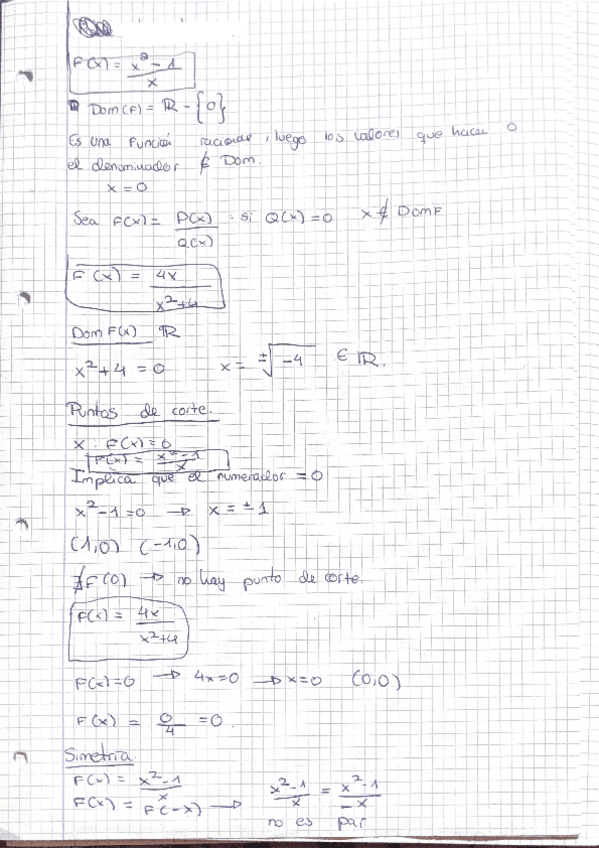 F(x) = x² - 1 / x
Dom(F) = ℝ - {0}
Es una función racional, luego los valores que hacen 0
el denominador ∉ Dom.
x = 0
Sea F(x) = P(x) / Q(x) : si Q(x) = 0 x ∉ Dom F
F(x) = 4x / x² + 4
Dom F(x) ℝ
x² + 4 = 0 x = ±√-4 ∈ ℝ.
Puntos de corte.
x : F(x) = 0
F(x) = x² - 1 / x
Implica que el numerador = 0
x² - 1 = 0 → x = ± 1
(1,0) (-1,0)
∄ F(0) → no hay punto de corte.
F(x) = 4x / x² + 4
F(x) = 0 → 4x = 0 → x = 0 (0,0)
F(x) = 0 / 4 = 0.
Simetría
F(x) = x² - 1 / x
F(x) = F(-x) → x² - 1 / x = x² - 1 / -x
no es par